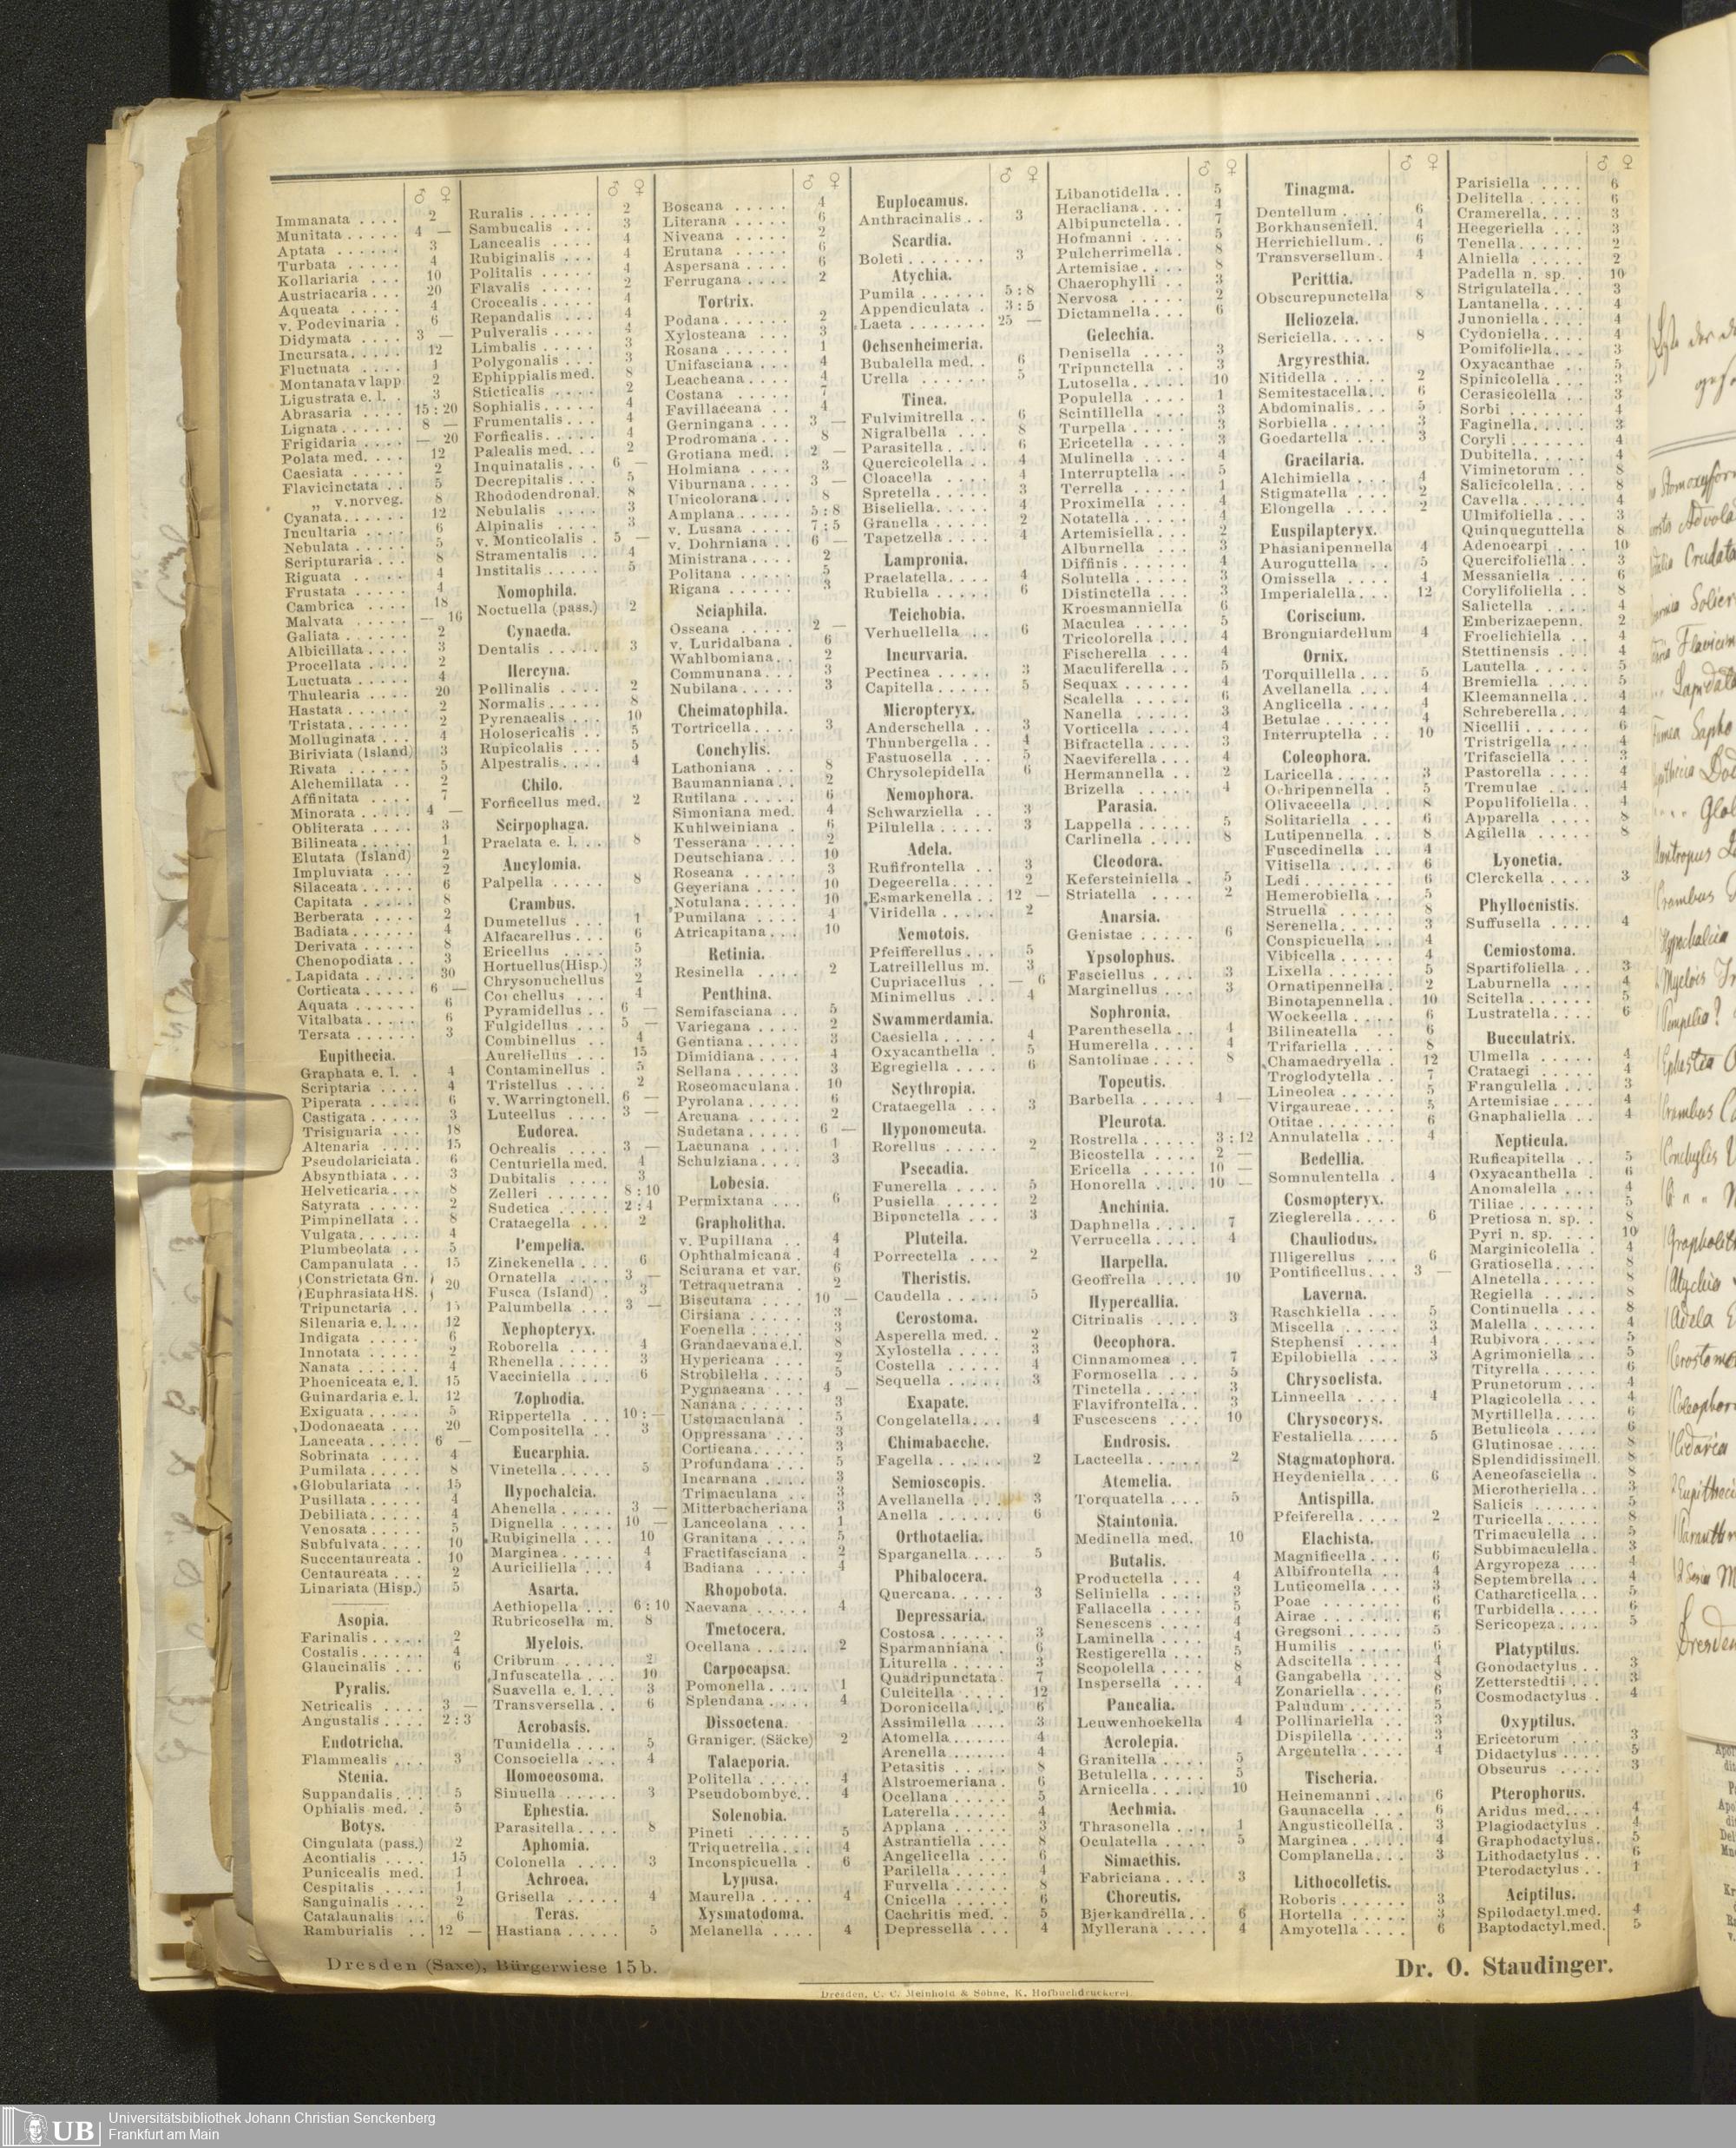 ♂ ♀
Immanata . . . . 2
Munitata . . . . . 4 —
Aptata . . . . . . 3
Turbata . . . . . 4
Kollariaria . . . 10
Austriacaria . . . 20
Aqueata . . . . . 4
v. Podevinaria . 6
Didymata . . . . 3 —
Incursata . . . . . 12
Fluctuata . . . . 1
Montanata v lapp. 2
Ligustrata e. l. . 3
Abrasaria . . . . 15 : 20
Lignata . . . . . . 8 —
Frigidaria . . . . — 20
Polata med. . . . 12
Caesiata . . . . . 2
Flavicinctata . . 5
„ v. norveg. 8
Cyanata . . . . . . 12
Incultaria . . . . 6
Nebulata . . . . . 5
Scripturaria . . . 8
Riguata . . . . . 4
Frustata . . . . . 4
Cambrica . . . . 18
Malvata . . . . . — 16
Galiata . . . . . . 2
Albicillata . . . . 3
Procellata . . . . 2
Luctuata . . . . . 4
Thulearia . . . . 20
Hastata . . . . . . 2
Tristata . . . . . . 2
Molluginata . . . 4
Biriviata (Island) 3
Rivata . . . . . . 5
Alchemillata . . 2
Affinitata . . . . 7
Minorata . . . . . 4 —
Obliterata . . . . 3
Bilineata . . . . . 1
Elutata (Island) 2
Impluviata . . . 2
Silaceata . . . . . 6
Capitata . . . . . 8
Berberata . . . . 2
Badiata . . . . . . 4
Derivata . . . . . 8
Chenopodiata . . 3
Lapidata . . . . . 30
Corticata . . . . . 6 —
Aquata . . . . . . 6
Vitalbata . . . . . 6
Tersata . . . . . . 3
Eupithecia.
Graphata e. l. . 4
Scriptaria . . . . 4
Piperata . . . . . 6
Castigata . . . . . 3
Trisignaria . . . 18
Altenaria . . . . 15
Pseudolariciata . 6
Absynthiata . . . 3
Helveticaria . . . 8
Satyrata . . . . . 2
Pimpinellata . . 8
Vulgata . . . . . . 4
Plumbeolata . . 5
Campanulata . . 15
(Constrictata Gn. )
(Euphrasiata HS. ) 20
Tripunctaria . . 15
Silenaria e. l. . . 12
Indigata . . . . . 6
Innotata . . . . . 2
Nanata . . . . . . 4
Phoeniceata e. l. 15
Guinardaria e. l. 12
Exiguata . . . . . 5
Dodonaeata . . . 20
Lanceata . . . . . 6 —
Sobrinata . . . . 4
Pumilata . . . . . 8
Globulariata . . 15
Pusillata . . . . . 4
Debiliata . . . . . 4
Venosata . . . . . 5
Subfulvata . . . . 10
Succentaureata . 10
Centaureata . . . 2
Linariata (Hisp.) 5
Asopia.
Farinalis . . . . . 2
Costalis . . . . . . 4
Glaucinalis . . . 6
Pyralis.
Netricalis . . . . 3 —
Angustalis . . . . 2 : 3
Endotricha.
Flammealis . . . 3
Stenia.
Suppandalis . . . 5
Ophialis med. . 5
Botys.
Cingulata (pass.) 2
Acontialis . . . . 15
Punicealis med. 1
Cespitalis . . . . 1
Sanguinalis . . . 2
Catalaunalis . . 6
Ramburialis . . 12 —
♂ ♀
Ruralis . . . . . . 2
Sambucalis . . . 3
Lancealis . . . . 4
Rubiginalis . . . 4
Politalis . . . . . 4
Flavalis . . . . . 2
Crocealis . . . . . 4
Repandalis . . . 4
Pulveralis . . . . 4
Limbalis . . . . . 3
Polygonalis . . . 3
Ephippialis med. 8
Sticticalis . . . . 2
Sophialis . . . . . 4
Frumentalis . . . 4
Forficalis . . . . . 4
Palealis med. . . 2
Inquinatalis . . . 6 —
Decrepitalis . . . 5
Rhododendronal. 8
Nebulalis . . . . 3
Alpinalis . . . . 3
v. Monticolalis . 5 —
Stramentalis . . 4
Institalis . . . . . 5
Nomophila.
Noctuella (pass.) 2
Cynaeda.
Dentalis . . . . . 3
Hercyna.
Pollinalis . . . . 2
Normalis . . . . . 8
Pyrenaealis . . . 10
Holosericalis . . 5
Rupicolalis . . . 5
Alpestralis . . . . 4
Chilo.
Forficellus med. 2
Scirpophaga.
Praelata e. l. . . 8
Ancylomia.
Palpella . . . . . 8
Crambus.
Dumetellus . . . 1
Alfacarellus . . . 6
Ericellus . . . . 5
Hortuellus(Hisp.) 3
Chrysonuchellus 2
Corchellus . . . 4
Pyramidellus . . 6 —
Fulgidellus . . . 5 —
Combinellus . . 4
Aureliellus . . . 15
Contaminellus . 5
Tristellus . . . . 2
v. Warringtonell. 6 —
Luteellus . . . . 3 —
Eudorea.
Ochrealis . . . . 3 —
Centuriella med. 4
Dubitalis . . . . 3
Zelleri . . . . . . 8 : 10
Sudetica . . . . . 2 : 4
Crataegella . . . 2
Pempelia.
Zinckenella . . . 6
Ornatella . . . . 3 —
Fusca (Island) . 3
Palumbella . . . 3 —
Nephopteryx.
Roborella . . . . 4
Rhenella . . . . . 3
Vacciniella . . . 6
Zophodia.
Rippertella . . . 10 : —
Compositella . . 3
Eucarphia.
Vinetella . . . . . 5
Hypochalcia.
Ahenella . . . . . 3 —
Dignella . . . . . 10 —
Rubiginella . . . 10
Marginea . . . . . 4
Auriciliella . . . 4
Asarta.
Aethiopella . . . 6 : 10
Rubricosella m. 8
Myelois.
Cribrum . . . . . 2
Infuscatella . . . 10
Suavella e. l. . . 3
Transversella . . 6
Acrobasis.
Tumidella . . . . 5
Consociella . . . 4
Homoeosoma.
Sinuella . . . . . 3
Ephestia.
Parasitella . . . . 8
Aphomia.
Colonella . . . . 3
Achroea.
Grisella . . . . . 4
Teras.
Hastiana . . . . . 5
♂ ♀
Boscana . . . . . 4
Literana . . . . . 6
Niveana . . . . . 2
Erutana . . . . . 6
Aspersana . . . . 6
Ferrugana . . . . 2
Tortrix.
Podana . . . . . . 2
Xylosteana . . . 3
Rosana . . . . . . 1
Unifasciana . . . 4
Leacheana . . . . 4
Costana . . . . . 7
Favillaceana . . 4
Gerningana . . . 3 —
Prodromana . . . 8
Grotiana med. . 2 —
Holmiana . . . . 3
Viburnana . . . . 3 —
Unicolorana . . . 8
Amplana . . . . . 5 : 8
v. Lusana . . . . 7 : 5
v. Dohrniana . . 6 —
Ministrana . . . . 2
Politana . . . . . 5
Rigana . . . . . . 3
Sciaphila.
Osseana . . . . . 2 —
v. Luridalbana . 6
Wahlbomiana . . 2
Communana . . . 3
Nubilana . . . . . 3
Cheimatophila.
Tortricella . . . . 3
Conchylis.
Lathoniana . . . 8
Baumanniana . . 2
Rutilana . . . . . 6
Simoniana med. 4
Kuhlweiniana . 6
Tesserana . . . . 2
Deutschiana . . . 10
Roseana . . . . . 3
Geyeriana . . . . 10
Notulana . . . . . 10
Pumilana . . . . 4
Atricapitana . . . 10
Retinia.
Resinella . . . . 2
Penthina.
Semifasciana . . 5
Variegana . . . . 2
Gentiana . . . . . 3
Dimidiana . . . . 4
Sellana . . . . . . 3
Roseomaculana . 10
Pyrolana . . . . . 6
Arcuana . . . . . 2
Sudetana . . . . . 6 —
Lacunana . . . . 1
Schulziana . . . . 3
Lobesia.
Permixtana . . . 6
Grapholitha.
v. Pupillana . . 4
Ophthalmicana . 4
Sciurana et var. 6
Tetraquetrana . 2
Biscutana . . . . 10 —
Cirsiana . . . . . 3
Foenella . . . . . 3
Grandaevana e.l. 8
Hypericana . . . 2
Strobilella . . . . 5
Pygmaeana . . . 4 —
Nanana . . . . . . 3
Ustomaculana . 5
Oppressana . . . 3
Corticana . . . . . 3
Profundana . . . 5
Incarnana . . . . 3
Trimaculana . . 3
Mitterbacheriana 3
Lanceolana . . . 1
Granitana . . . . 5
Fractifasciana . 2
Badiana . . . . . 4
Rhopobota.
Naevana . . . . . 4
Tmetocera.
Ocellana . . . . . 2
Carpocapsa.
Pomonella . . . . 1
Splendana . . . . 4
Dissoctena.
Graniger. (Säcke) 2
Talaeporia.
Politella . . . . . 4
Pseudobombyc. . 4
Solenobia.
Pineti . . . . . . 5
Triquetrella . . . 4
Inconspicuella . 6
Lypusa.
Maurella . . . . . 4
Xysmatodoma.
Melanella . . . . 4
♂ ♀
Euplocamus.
Anthracinalis . . 3
Scardia.
Boleti . . . . . . . 3
Atychia.
Pumila . . . . . . 5 : 8
Appendiculata . 3 : 5
Laeta . . . . . . . 25 —
Ochsenheimeria.
Bubalella med. . 6
Urella . . . . . . 5
Tinea.
Fulvimitrella . . 6
Nigralbella . . . 8
Parasitella . . . . 6
Quercicolella . . 4
Cloacella . . . . 4
Spretella . . . . . 3
Biseliella . . . . . 4
Granella . . . . . 2
Tapetzella . . . . 4
Lampronia.
Praelatella . . . . 4
Rubiella . . . . . 6
Teichobia.
Verhuellella . . 6
Incurvaria.
Pectinea . . . . . 3
Capitella . . . . . 5
Micropteryx.
Anderschella . . 3
Thunbergella . . 4
Fastuosella . . . 5
Chrysolepidella 6
Nemophora.
Schwarziella . . 3
Pilulella . . . . . 3
Adela.
Rufifrontella . . 3
Degeerella . . . . 2
Esmarkenella . . 12 —
Viridella . . . . . 2
Nemotois.
Pfeifferellus . . . 5
Latreillellus m. 3
Cupriacellus . . — 6
Minimellus . . . 4
Swammerdamia.
Caesiella . . . . . 4
Oxyacanthella . 5
Egregiella . . . . 6
Scythropia.
Crataegella . . . 3
Hyponomeuta.
Rorellus . . . . . 2
Psecadia.
Funerella . . . . 5
Pusiella . . . . . 2
Bipunctella . . . 3
Plutella.
Porrectella . . . 2
Theristis.
Caudella . . . . . 5
Cerostoma.
Asperella med. . 2
Xylostella . . . . 3
Costella . . . . . 4
Sequella . . . . . 3
Exapate.
Congelatella . . . 4
Chimabacche.
Fagella . . . . . . 2
Semioscopis.
Avellanella . . . 3
Anella . . . . . . 6
Orthotaelia.
Sparganella . . . 5
Phibalocera.
Quercana . . . . . 3
Depressaria.
Costosa . . . . . . 3
Sparmanniana . 6
Liturella . . . . . 3
Quadripunctata . 7
Culcitella . . . . 12
Doronicella . . . 6
Assimilella . . . 3
Atomella . . . . . 4
Arenella . . . . . 4
Petasitis . . . . . 8
Alstroemeriana . 6
Ocellana . . . . . 5
Laterella . . . . . 4
Applana . . . . . 3
Astrantiella . . . 8
Angelicella . . . 6
Parilella . . . . . 4
Furvella . . . . . 8
Cnicella . . . . . 6
Cachritis med. . 5
Depressella . . . 4
♂ ♀
Libanotidella . . 5
Heracliana . . . . 4
Albipunctella . . 7
Hofmanni . . . . 5
Pulcherrimella . 8
Artemisiae . . . . 8
Chaerophylli . . 3
Nervosa . . . . . 2
Dictamnella . . . 6
Gelechia.
Denisella . . . . 3
Tripunctella . . 3
Lutosella . . . . . 10
Populella . . . . 1
Scintillella . . . 3
Turpella . . . . . 3
Ericetella . . . . 3
Mulinella . . . . 4
Interruptella . . 5
Terrella . . . . . 1
Proximella . . . 4
Notatella . . . . . 4
Artemisiella . . . 2
Alburnella . . . 3
Diffinis . . . . . . 4
Solutella . . . . . 3
Distinctella . . . 3
Kroesmanniella 6
Maculea . . . . . 5
Tricolorella . . . 4
Fischerella . . . 4
Maculiferella . . 5
Sequax . . . . . . 4
Scalella . . . . . 6
Nanella . . . . . 3
Vorticella . . . . 4
Bifractella . . . . 3
Naeviferella . . . 4
Hermannella . . 2
Brizella . . . . . 4
Parasia.
Lappella . . . . . 5
Carlinella . . . . 8
Cleodora.
Kefersteiniella . 5
Striatella . . . . 2
Anarsia.
Genistae . . . . . 6
Ypsolophus.
Fasciellus . . . . 3
Marginellus . . . 3
Sophronia.
Parenthesella . . 4
Humerella . . . . 4
Santolinae . . . . 8
Topeutis.
Barbella . . . . . 4 —
Pleurota.
Rostrella . . . . . 3 : 12
Bicostella . . . . 2 —
Ericella . . . . . 10 —
Honorella . . . . 10 —
Anchinia.
Daphnella . . . . 7
Verrucella . . . . 4
Harpella.
Geoffrella . . . . 10
Hypercallia.
Citrinalis . . . . 3
Oecophora.
Cinnamomea . . 7
Formosella . . . 5
Tinctella . . . . . 3
Flavifrontella . . 3
Fuscescens . . . 10
Endrosis.
Lacteella . . . . . 2
Atemelia.
Torquatella . . . 5
Staintonia.
Medinella med. 10
Butalis.
Productella . . . 4
Seliniella . . . . 3
Fallacella . . . . 5
Senescens . . . . 4
Laminella . . . . 4
Restigerella . . . 5
Scopolella . . . . 8
Inspersella . . . 4
Pancalia.
Leuwenhoekella 4
Acrolepia.
Granitella . . . . 5
Betulella . . . . . 5
Arnicella . . . . . 10
Aechmia.
Thrasonella . . . 1
Oculatella . . . . 5
Simaethis.
Fabriciana . . . . 3
Choreutis.
Bjerkandrella . . 6
Myllerana . . . . 4
♂ ♀
Tinagma.
Dentellum . . . . 6
Borkhauseniell. 4
Herrichiellum . . 6
Transversellum . 4
Perittia.
Obscurepunctella 8
Heliozela.
Sericiella . . . . . 8
Argyresthia.
Nitidella . . . . . 2
Semitestacella . . 6
Abdominalis . . . 5
Sorbiella . . . . . 3
Goedartella . . . 3
Gracilaria.
Alchimiella . . . 4
Stigmatella . . . 2
Elongella . . . . 2
Euspilapteryx.
Phasianipennella 4
Auroguttella . . 5
Omissella . . . . 4
Imperialella . . . 12
Coriscium.
Brongniardellum 4
Ornix.
Torquillella . . . 5
Avellanella . . . 4
Anglicella . . . . 4
Betulae . . . . . 4
Interruptella . . 10
Coleophora.
Laricella . . . . . 3
Ochripennella . 5
Olivaceella . . . 8
Solitariella . . . 6
Lutipennella . . . 8
Fuscedinella . . 4
Vitisella . . . . . 6
Ledi . . . . . . . . 6
Hemerobiella . . 5
Struella . . . . . 8
Serenella . . . . . 3
Conspicuella . . 4
Vibicella . . . . . 4
Lixella . . . . . . 5
Ornatipennella . 2
Binotapennella . 10
Wockeella . . . . 6
Bilineatella . . 6
Trifariella . . . . 8
Chamaedryella . 12
Troglodytella . . 7
Lineolea . . . . . 5
Virgaureae . . . . 5
Otitae . . . . . . . 6
Annulatella . . . 4
Bedellia.
Somnulentella . 4
Cosmopteryx.
Zieglerella . . . . 6
Chauliodus.
Illigerellus . . . 6
Pontificellus . . . 3 —
Laverna.
Raschkiella . . . 5
Miscella . . . . . 3
Stephensi . . . . 4
Epilobiella . . . 3
Chrysoclista.
Linneella . . . . 4
Chrysocorys.
Festaliella . . . . 5
Stagmatophora.
Heydeniella . . . 6
Antispilla.
Pfeiferella . . . . 2
Elachista.
Magnificella . . . 6
Albifrontella . . 4
Luticomella . . . 3
Poae . . . . . . . 6
Airae . . . . . . . 6
Gregsoni . . . . . 5
Humilis . . . . . 6
Adscitella . . . . 4
Gangabella . . . 8
Zonariella . . . . 6
Paludum . . . . . 5
Pollinariella . . 3
Dispilella . . . . 3
Argentella . . . . 4
Tischeria.
Heinemanni . . . 6
Gaunacella . . . 6
Angusticollella . 3
Marginea . . . . . 4
Complanella . . . 3
Lithocolletis.
Roboris . . . . . 3
Hortella . . . . . 3
Amyotella . . . . 6
♂ ♀
Parisiella . . . . 6
Delitella . . . . . 6
Cramerella . . . . 3
Heegeriella . . . 3
Tenella . . . . . . 2
Alniella . . . . . 2
Padella n. sp. . 10
Strigulatella . . . 3
Lantanella . . . . 4
Junoniella . . . . 4
Cydoniella . . . . 4
Pomifoliella . . . 3
Oxyacanthae . . 5
Spinicolella . . . 3
Cerasicolella . . 3
Sorbi . . . . . . . 4
Faginella . . . . . 3
Coryli . . . . . . . 4
Dubitella . . . . . 4
Viminetorum . . 8
Salicicolella . . . 8
Cavella . . . . . . 4
Ulmifoliella . . . 3
Quinqueguttella 8
Adenocarpi . . . 10
Quercifoliella . . 3
Messaniella . . . 6
Corylifoliella . . 8
Salictella . . . . 4
Emberizaepenn. 2
Froelichiella . . 4
Stettinensis . . . 4
Lautella . . . . . 5
Bremiella . . . . 5
Kleemannella . . 4
Schreberella . . . 4
Nicellii . . . . . . 6
Tristrigella . . . 4
Trifasciella . . . 3
Pastorella . . . . 4
Tremulae . . . . 4
Populifoliella . . 4
Apparella . . . . 8
Agilella . . . . . 8
Lyonetia.
Clerckella . . . . 3
Phyllocnistis.
Suffusella . . . . 4
Cemiostoma.
Spartifoliella . . 3
Laburnella . . . 4
Scitella . . . . . . 5
Lustratella . . . . 6
Bucculatrix.
Ulmella . . . . . 4
Crataegi . . . . . 4
Frangulella . . . 3
Artemisiae . . . . 4
Gnaphaliella . . 4
Nepticula.
Ruficapitella . . 5
Oxyacanthella . 6
Anomalella . . . 4
Tiliae . . . . . . . 5
Pretiosa n. sp. . 8
Pyri n. sp. . . . 10
Marginicolella . 4
Gratiosella . . . . 8
Alnetella . . . . . 8
Regiella . . . . . 8
Continuella . . . 8
Malella . . . . . . 4
Rubivora . . . . . 5
Agrimoniella . . 5
Tityrella . . . . . 6
Prunetorum . . . 4
Plagicolella . . . 4
Myrtillella . . . . 6
Betulicola . . . . 6
Glutinosae . . . . 8
Splendidissimell. 8
Aeneofasciella . 8
Microtheriella . . 3
Salicis . . . . . . 5
Turicella . . . . . 8
Trimaculella . . 5
Subbimaculella . 3
Argyropeza . . . 4
Septembrella . . 4
Catharcticella . . 5
Turbidella . . . . 6
Sericopeza . . . . 5
Platyptilus.
Gonodactylus . . 3
Zetterstedtii . . . 3
Cosmodactylus . 4
Oxyptilus.
Ericetorum . . . 3
Didactylus . . . . 5
Obscurus . . . . 3
Pterophorus.
Aridus med. . . . 4
Plagiodactylus . 4
Graphodactylus . 5
Lithodactylus . . 6
Pterodactylus . . 1
Aciptilus.
Spilodactyl.med. 4
Baptodactyl.med. 5
Dresden (Saxe), Bürgerwiese 15 b.
Dr. O. Staudinger.
Dresden, C. C. Meinhold & Söhne, K. Hofbuchdruckerei.
UB
Universitätsbibliothek Johann Christian Senckenberg
Frankfurt am Main